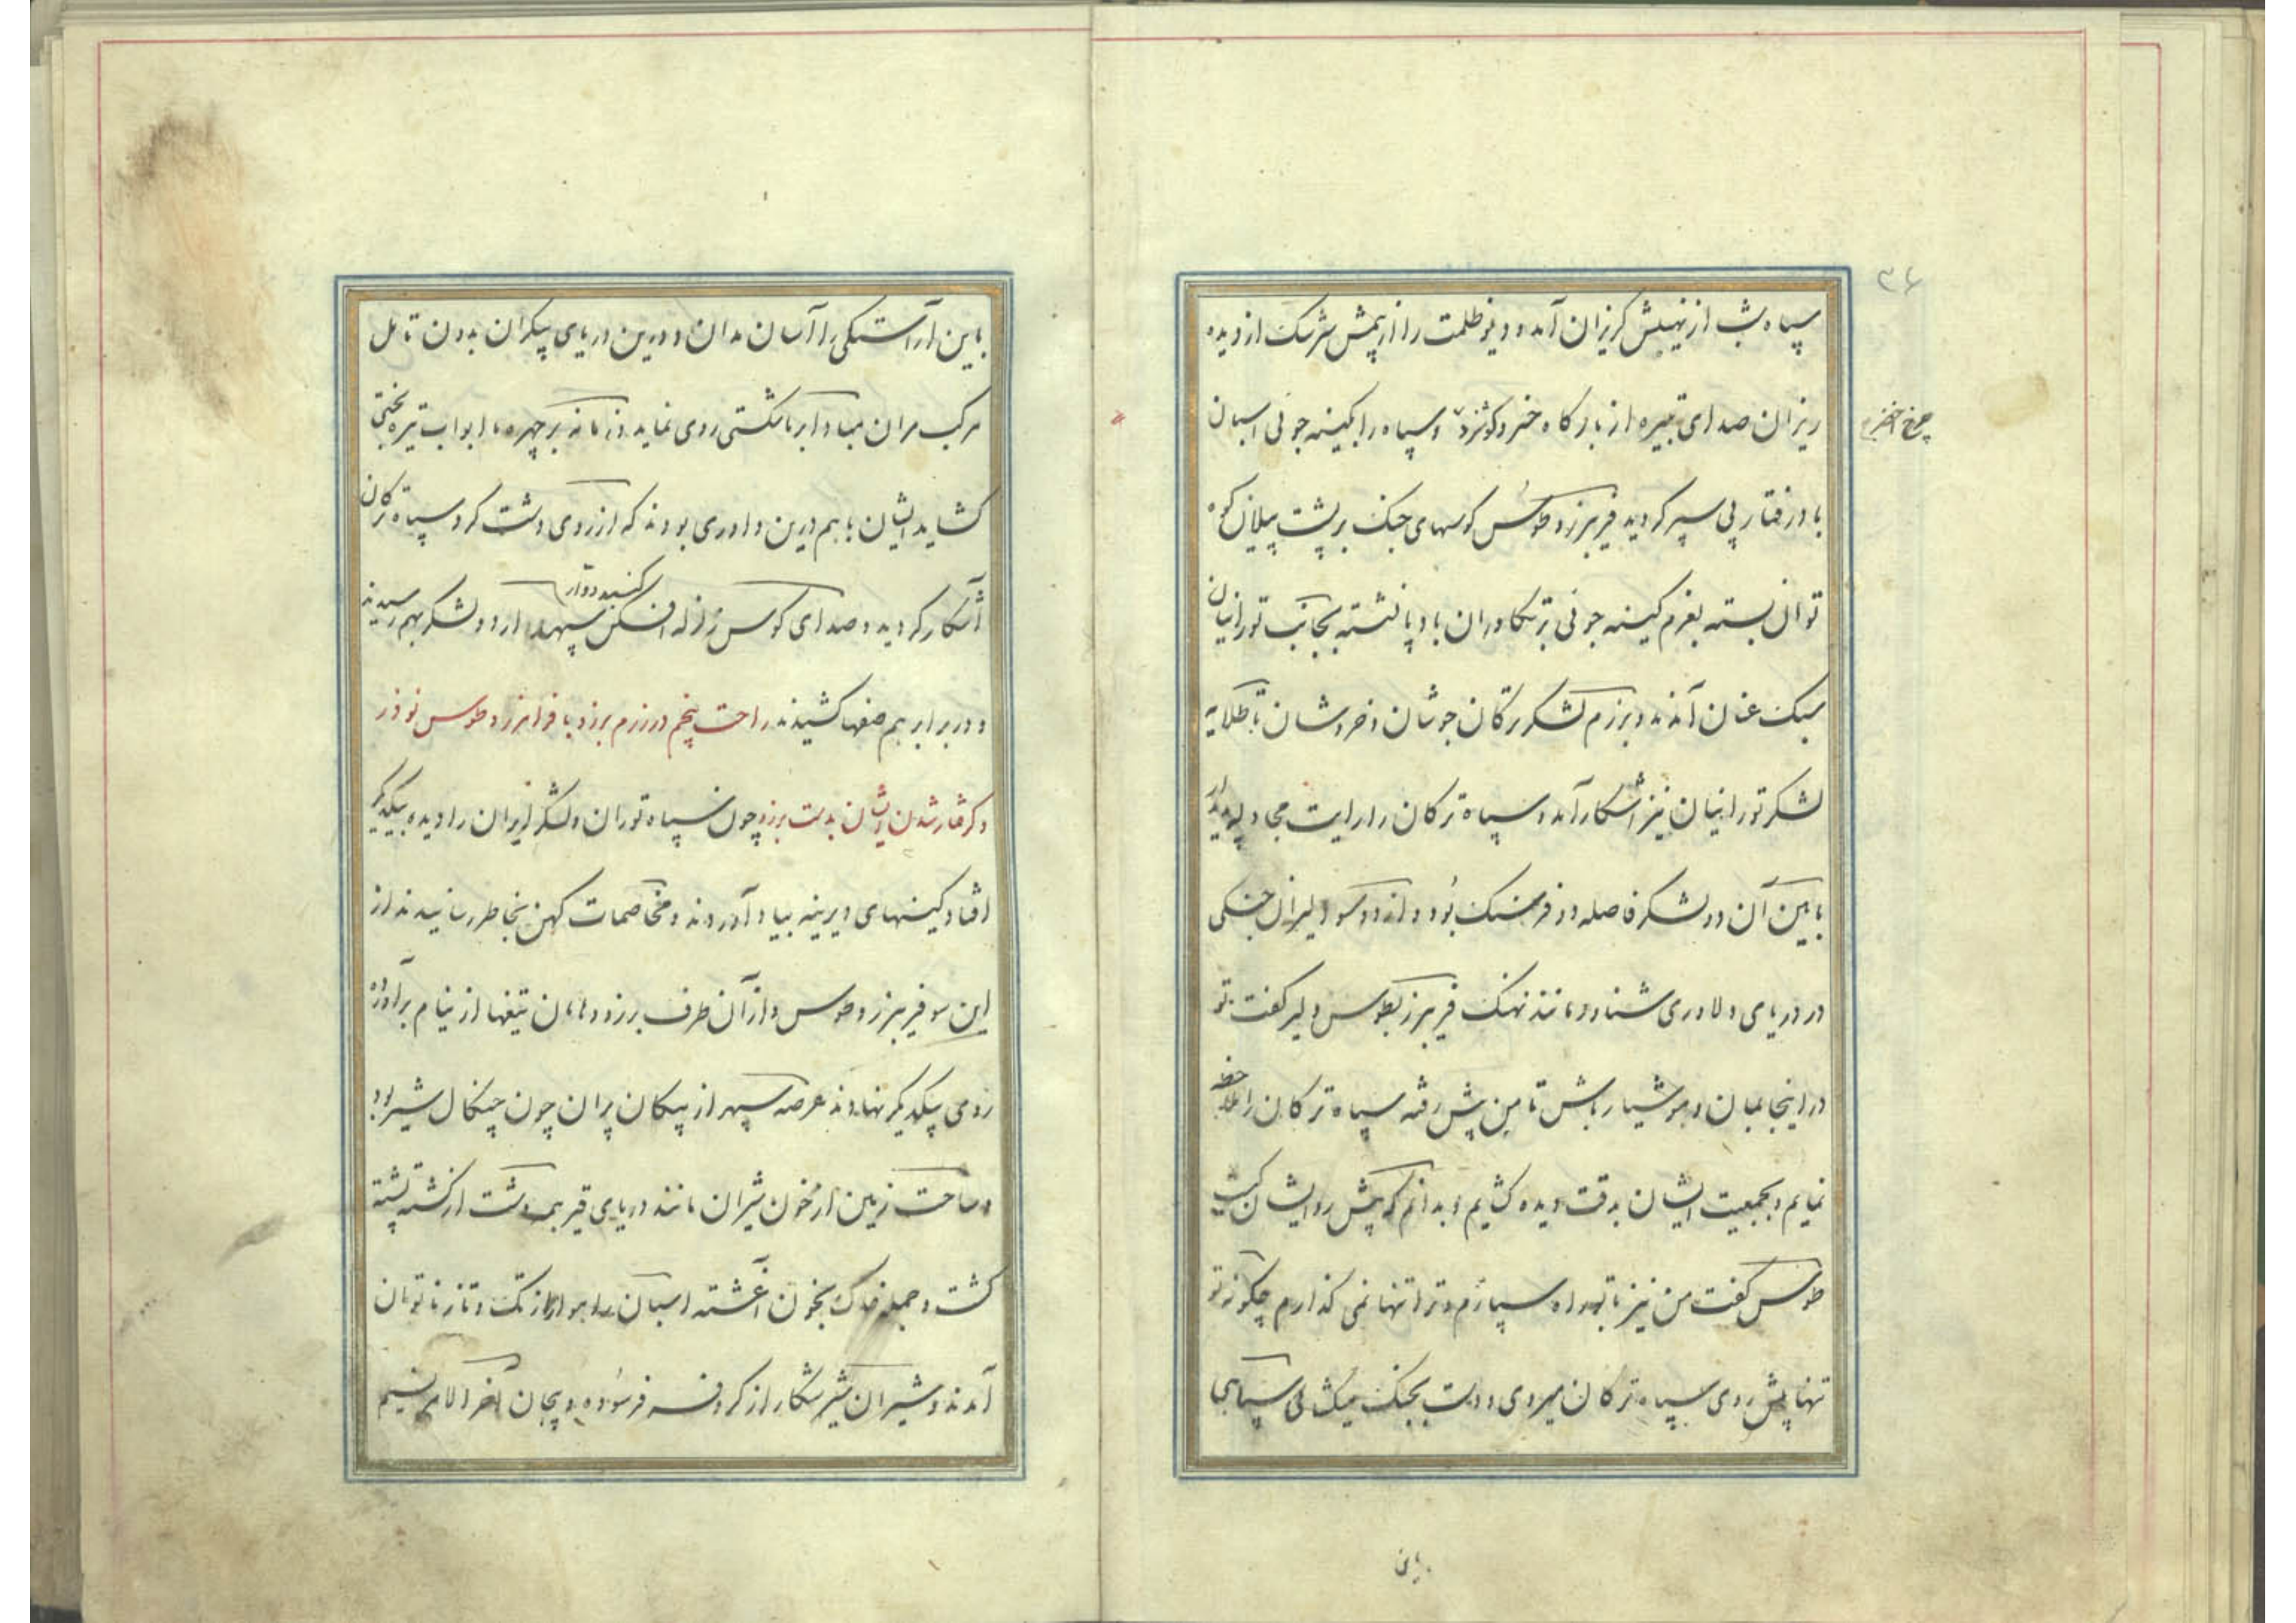 ۳۶
سپاه شب از نهیبش گریزان آمد و دیو ظلمت را از بیمش سرشک از دیده
ریزان صدای تبیره از بارگاه خسرو گوشزد و سپاه را بکینه جوئی اسبان
چرخ اخضر
باد رفتار پی سپر گردید فریبرز و طوس کوسهای جنک بر پشت پیلان کوه
توان بسته بعزم کینه جوئی بر تکاوران بادپا نشسته بجانب تورانیان
سبک عنان آمدند و برزم لشکر ترکان جوشان و خروشان تا طلایه
لشکر تورانیان نیز آشکار آمد و سپاه ترکان را رایت پدیدار
ما بین آن دو لشکر فاصله دو فرسنک بود و از دو سو دلیران جنکی
در دریای دلاوری شناور مانند نهنک فریبرز بطوس دلیر کفت تو
در اینجا بمان و هوشیار باش تا من پیش رفته سپاه ترکان را ملاحظه
نمایم و بجمعیت ایشان بدقت دیده کشایم و بدانم که پیش رو ایشان کیست
طوس کفت من نیز با تو راه سپارم و ترا تنها نمی کذارم چکونه تو
تنها پیش روی سپاه ترکان میروی و دست بجنک میکشائی سپاهی
باین
باین آراستکی را آسان مدان و درین دریای بیکران بدون تامل
مرکب مران مبادا بر ما شکستی روی نماید و زمانه بر چهره ما ابواب تیره بختی
کشاید ایشان با هم درین داوری بودند که از روی دشت کرد سپاه ترکان
آشکار کردید و صدای کوس زلزله افکن کنبد دوار دو لشکر بهم رسیدند
و در برابر هم صفها کشیدند راحت پنجم در رزم برزو با فرامرز و طوس نوذر
و کرفتار شدن ایشان بدست برزو چون سپاه توران و لشکر ایران را دیده بیکدیگر
افتاد کینهای دیرینه بیاد آوردند و مخاصمات کهن بخاطر رسانیدند از
این سو فریبرز و طوس و از آن طرف برزو و هامان تیغها از نیام برآورده
روی بیکدیکر نهادند عرصه سپهر از پیکان پران چون چنکال شیر بود
و ساحت زمین از خون شیران مانند دریای قیر همه دشت از کشته پشته
کشت و جمله خاک بخون آغشته اسبان راهوار از تک و تاز ناتوان
آمدند و شیران شیر شکار از کر و فر فرسوده و پیجان آخر الامر نسیم